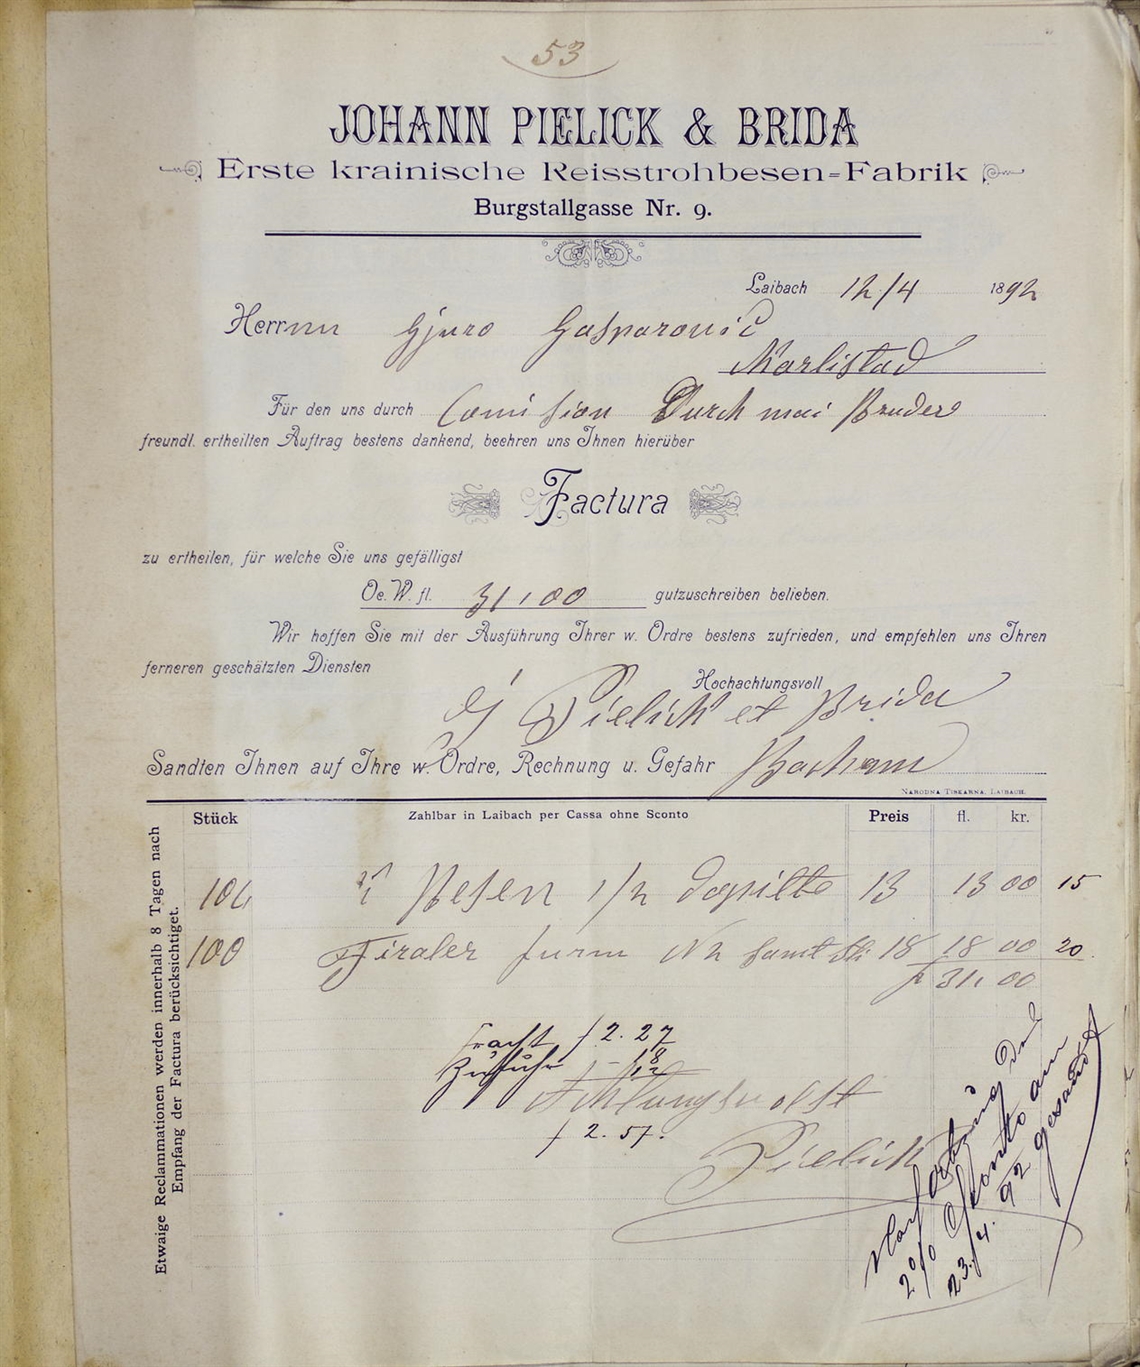 53
JOHANN PIELICK & BRIDA
Erste krainische Reisstrohbesen=Fabrik
Burgstallgasse Nr. 9.
Laibach 12/4 1892
Herrnn Gjuro Gasparović
Karlstad
Für den uns durch Comision Durch mai Bruder
freundl. ertheilten Auftrag bestens dankend, beehren uns Ihnen hierüber
Factura
zu ertheilen, für welche Sie uns gefälligst
Oe. W. fl. 31,00 gutzuschreiben belieben.
Wir hoffen Sie mit der Ausführung Ihrer w. Ordre bestens zufrieden, und empfehlen uns Ihren
ferneren geschätzten Diensten
Hochachtungsvoll
J Pielick et Brida
Sandten Ihnen auf Ihre w. Ordre, Rechnung u. Gefahr
NARODNA TISKARNA, LAIBACH.
Stück Zahlbar in Laibach per Cassa ohne Sconto Preis fl. kr.
Besen 13 13 00 15
100 Tiroler N 2 18 18 00 20
f 31, 00
Fracht f 2. 27
Zufuhr
Achtungsvollst
f 2. 57.
Pielick
2% Sconto am
23./4. 92 gesandt
Etwaige Reclammationen werden innerhalb 8 Tagen nach
Empfang der Factura berücksichtiget.